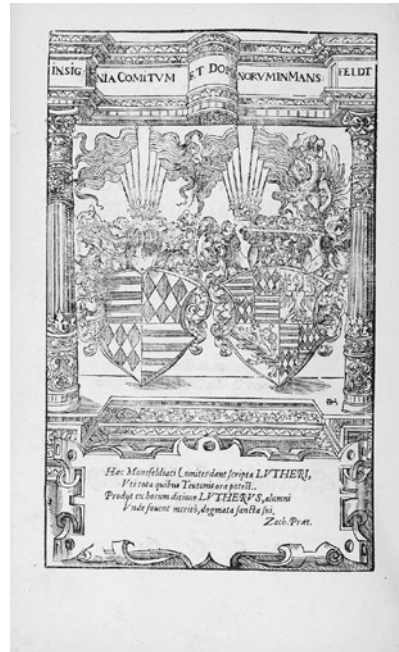 INSIG NIA COMITVM ET DOMI NORVM IN MANS: FELDT
Hæc Mansfeldiaci Comites dant scripta LVTHERI,
Vti tota quibus Teutonis ora potest.
Prodijt ex horum ditione LVTHERVS, alumni
Vnde fouent meritò, dogmata sancta sui.
Zach. Præt.